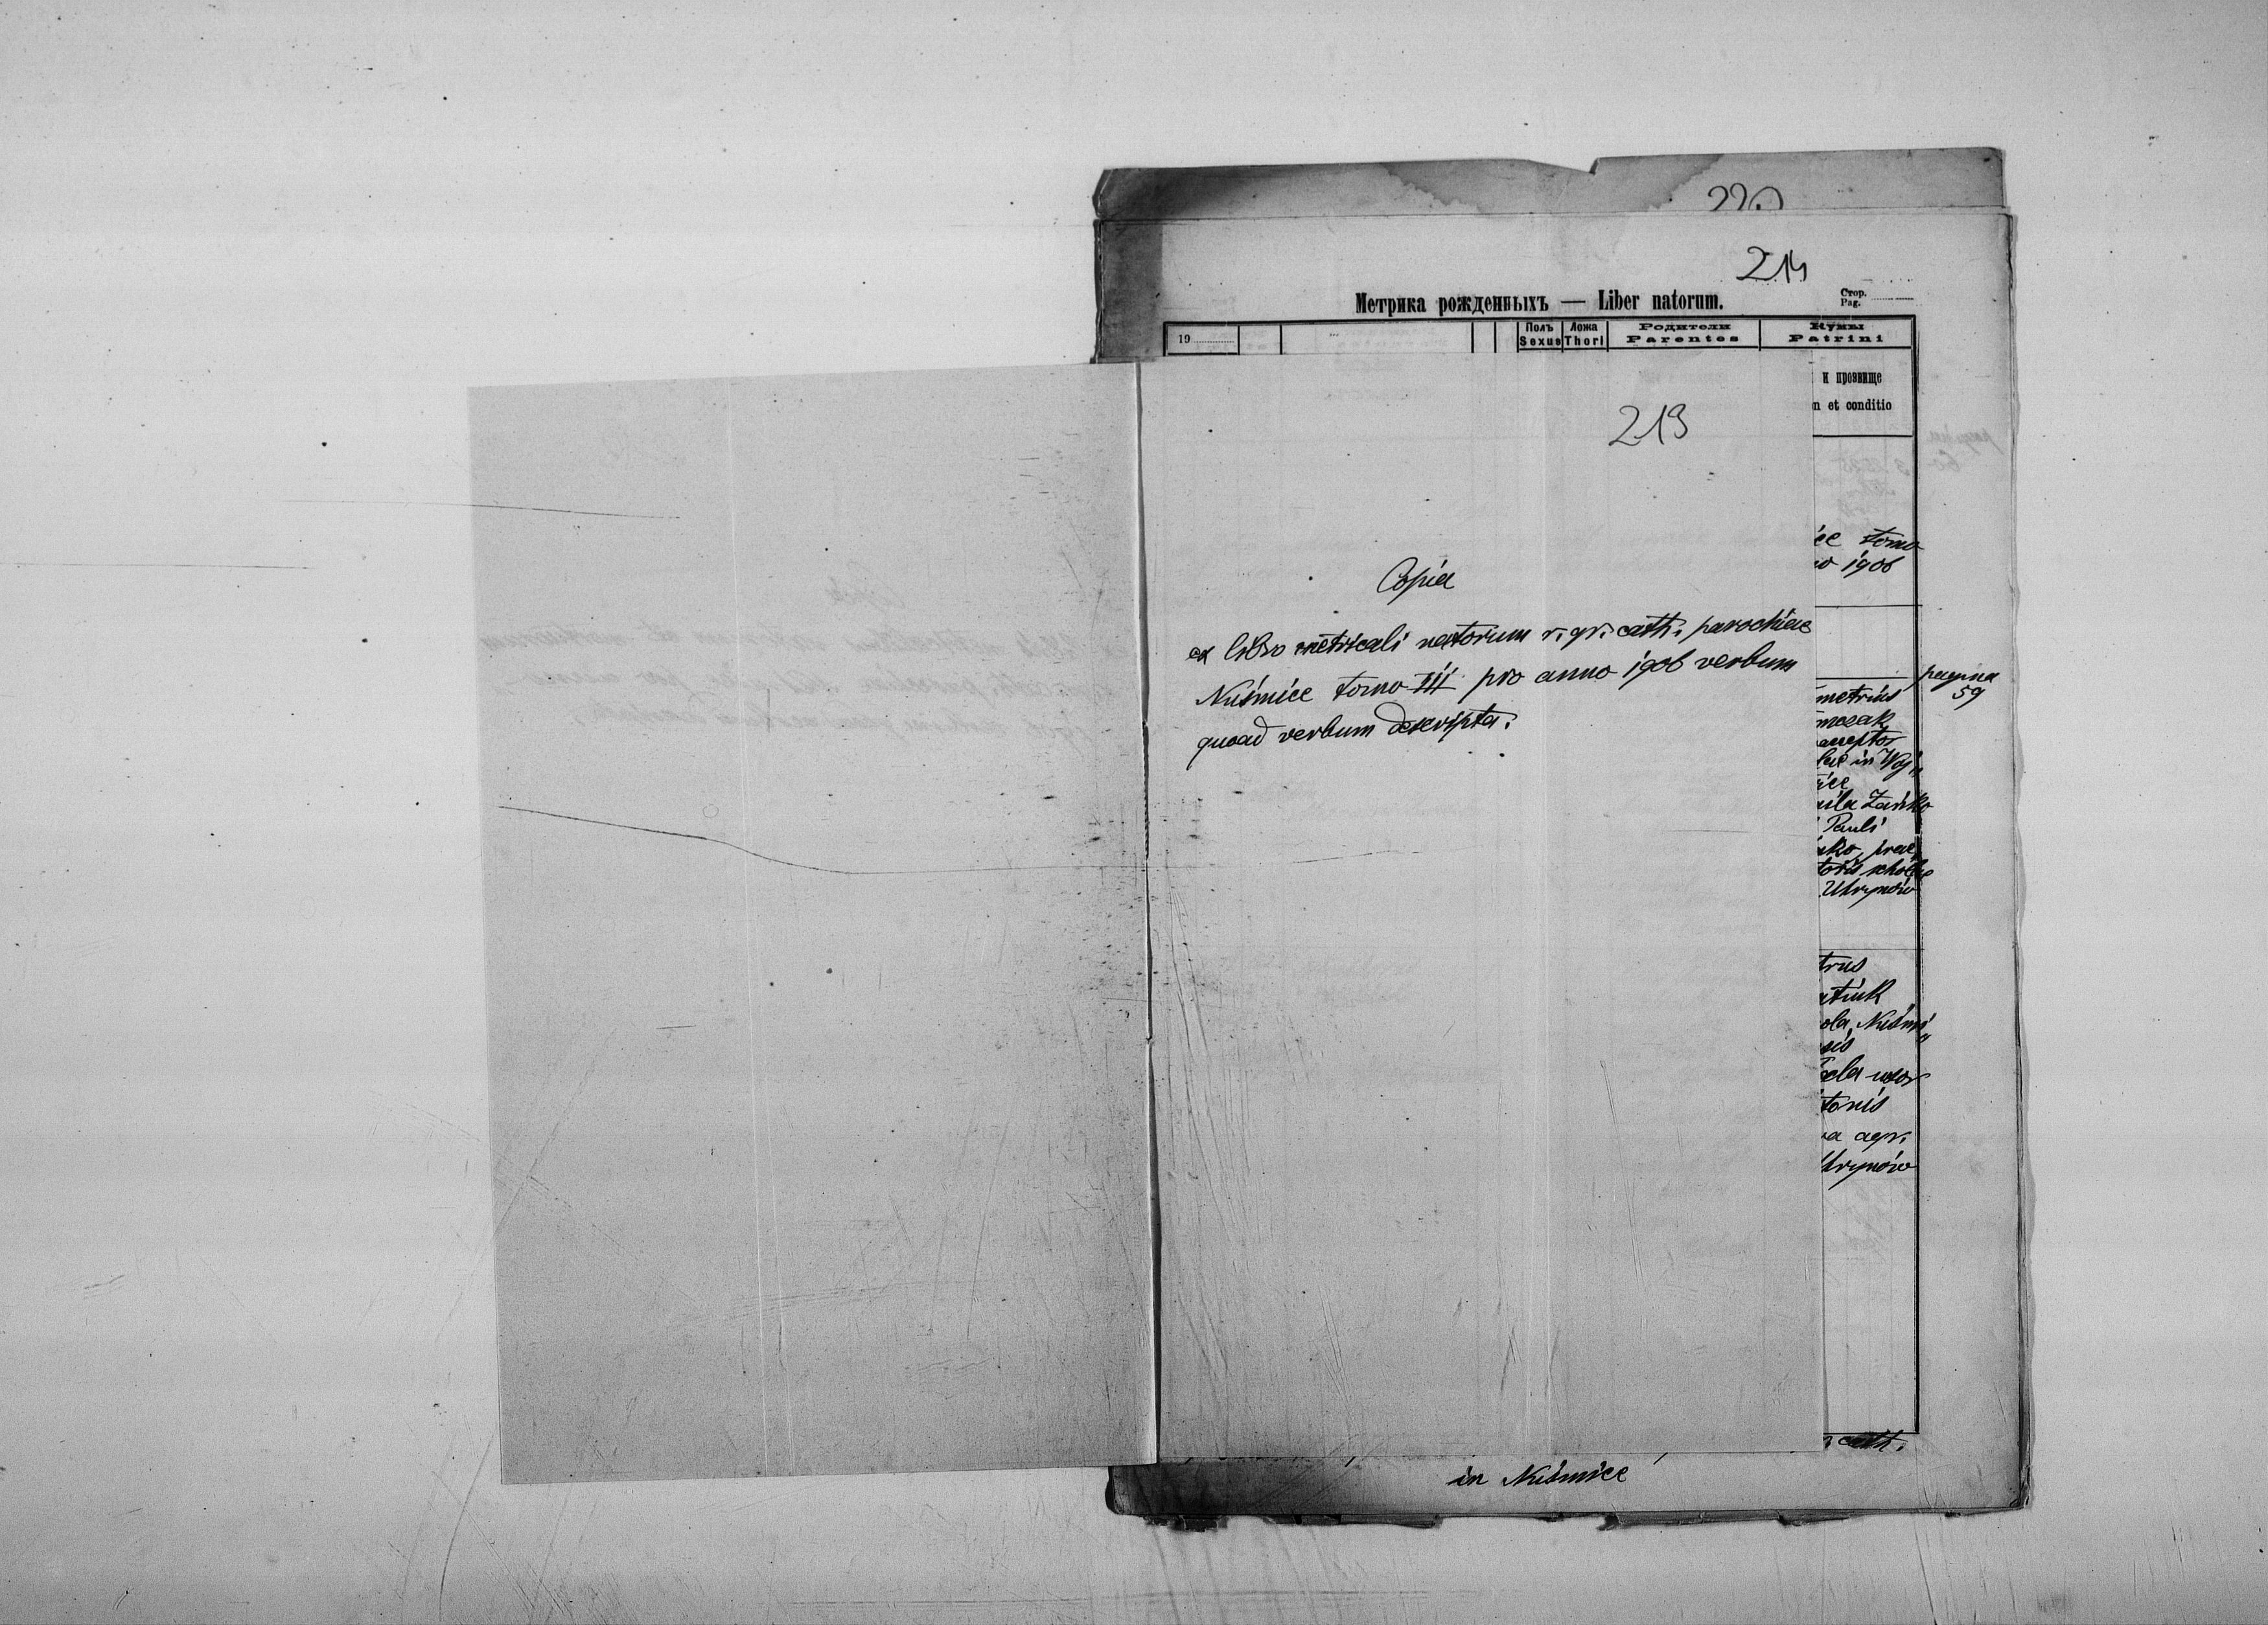 220
214
Метрика рожденныхъ — Liber natorum.
Стор.
Pag.
19
Полъ
Sexus
Ложа
Thori
Родители
Parentes
Кумы
Patrini
и прозвище
n et conditio
213
ce tomo
no 1906
Copia
ex libro metricali natorum r. gr. cath. parochiae
Nuśmice tomo III pro anno 1906 verbum
quoad verbum descripta.
pagina
59
metrius
mczak
aeceptor
lae in Woj„
ice
mila Zańko
Pauli
ńko, prae„
toris scholae
Uhrynów
trus
atiuk
ola Nuśmi„
sis
ecla uxor
tonis
va agr.
Uhrynów
cath.
in Nuśmice